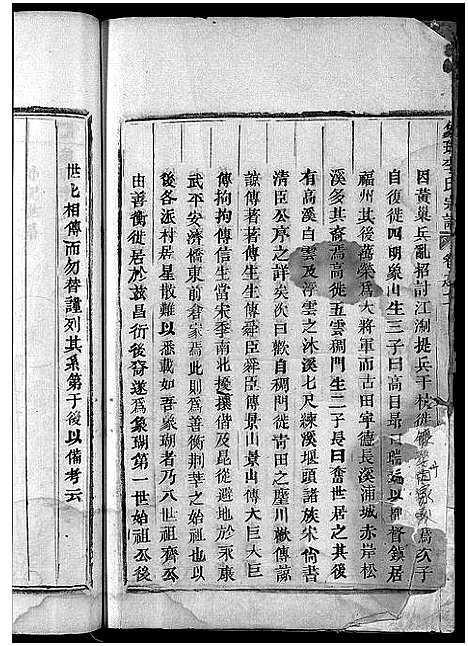 因黃巢兵亂招討江淛提兵于
自復徙四明象山生三子曰高目昂曰瑞瑞以押督鎮居
福州其後萬榮爲大將軍而古田寧德長溪浦城赤岸松
溪多其裔焉高徙五雲稠門生二子長曰奮世居之其後
有高溪白雲及浮雲之沐溪七尺練溪堰頭諸族宋尙書
清臣公序之詳矣次曰歡自稠門徙靑田之壟川歡傳諒
諒傳著著傳舜臣舜臣傳景山景山傳大巨大巨
傳拘拘傳信生當宋季南北擾攘偕及昆從避地於永康
武平安濟橋東前倉家焉此則爲善衡荆華之始祖也
後各派村居星散難以悉載如吾象瑚者乃八世祖齊公
由善衡徙居於玆昌衍後裔遂爲象瑚第一世始祖公後
世匕相傳而勿替謹列其系第于後以備考云